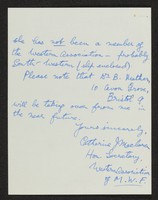 she has not been a member of
the Western Association - probably
South-Western (Dip husband)
Please note that Mr B. Mather
10 Avon Grove,
Bristol 9
will be taking over from me in
the near future.
Yours sincerely,
Catherine J Maclean
Hon Secretary,
Western Association
of M.W.F.